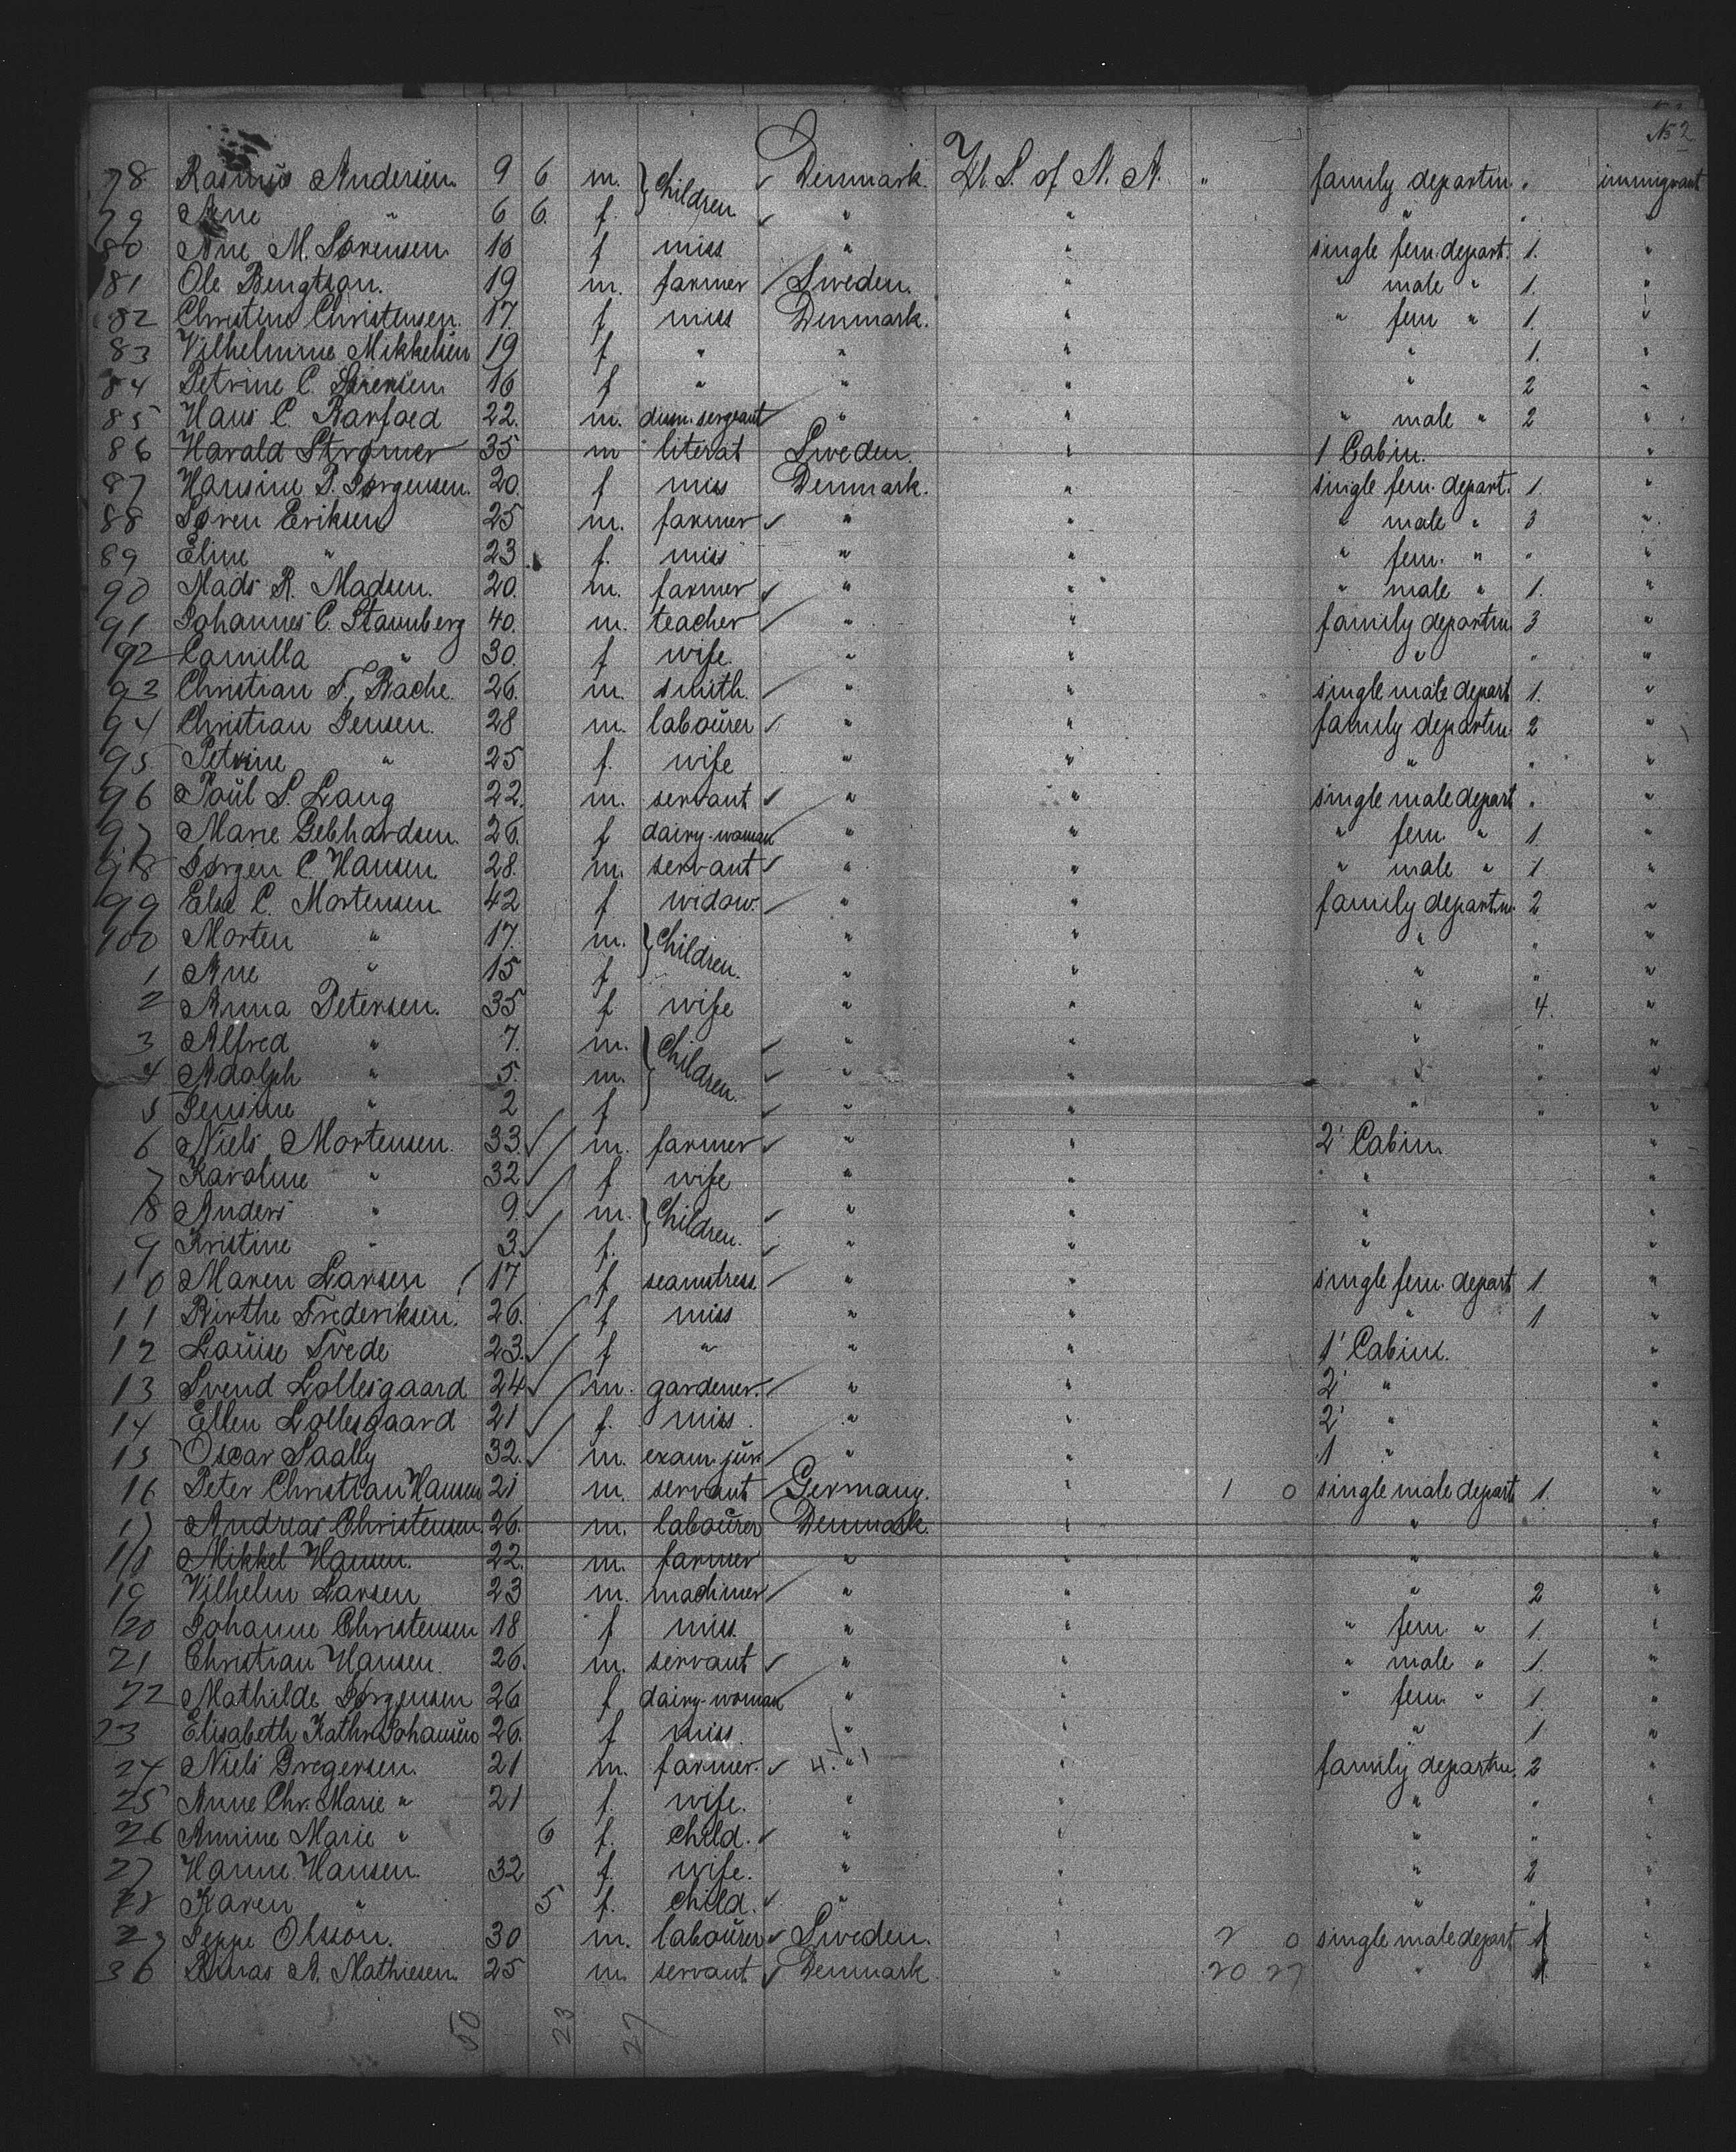 No 2
78 Rasmus Andersen. 9 6 m. } Children Denmark. U. S. of N. A. " family departm. " immigrant
79 Ane " 6 6 f. " " " " "
80 Ane M. Sørensen. 16 f miss " " single fem. depart. 1. "
81 Ole Bengtson. 19 m. farmer Sweden. " " male " 1. "
82 Christine Christensen. 17. f miss Denmark. " " fem " 1. "
83 Vilhelmine Mikkelsen 19 f " " " " 1. "
84 Petrine C. Sørensen 16 f " " " " 2 "
85 Hans C. Barfoed 22. m. dism. sergeant " " " male " 2 "
86 Harald Strømer 35 m literat Sweden. " 1 Cabin. "
87 Hansine P. Jørgensen. 20. f miss Denmark. " single fem. depart. 1. "
88 Søren Eriksen 25 m. farmer " " " male " 3 "
89 Eline " 23 f. miss " " " fem. " " "
90 Mads R. Madsen. 20. m. farmer " " " male " 1. "
91 Johannes C. Staunberg 40. m. teacher " " family departm. 3 "
92 Camilla " 30. f wife. " " " " "
93 Christian F. Bache. 26. m. smith. " " single male depart 1. "
94 Christian Jensen. 28 m. labourer " " family departm. 2 "
95 Petrine " 25 f. wife " " " " "
96 Poul S. Lang 22. m. servant " " single male depart " "
97 Marie Gebhardsen. 26. f dairy-woman " " " fem. " 1. "
98 Jørgen C. Hansen 28. m. servant " " " male " 1. "
99 Else C. Mortensen 42 f widow. " " family departm. 2 "
100 Morten " 17. m. } Children. " " " " "
1 Ane " 15 f " " " " "
2 Anna Petersen. 35 f wife " " " 4. "
3 Alfred " 7. m. } Children. " " " " "
4 Adolph " 5. m. " " " " "
5 Jensine " 2 f " " " " "
6 Niels Mortensen. 33. m. farmer " " 2' Cabin. "
7 Karoline " 32 f wife " " " "
8 Anders " 9. m. } Children. " " " "
9 Kristine " 3. f. " " " "
10 Maren Larsen 17 f seamstress. " " single fem. depart 1. "
11 Birthe Frederiksen. 26. f miss " " " 1 "
12 Louise Tvede 23. f " " " 1' Cabin. "
13 Svend Lollesgaard 24 m. gardener. " " 2' " "
14 Ellen Lollesgaard 21 f. miss. " " 2' " "
15 Oscar Saally 32. m. exam. jur. " " 1 " "
16 Peter Christian Hansen 21 m. servant Germany. " 1 0 single male depart 1. "
17 Andreas Christensen. 26. m. labourer Denmark. " " "
118 Mikkel Hansen. 22. m. farmer " " " "
19 Vilhelm Larsen 23 m. machiner " " " 2 "
120 Johanne Christensen 18 f miss. " " " fem. " 1. "
21 Christian Hansen. 26. m. servant " " " male " 1. "
22 Mathilde Jørgensen 26 f dairy-woman " " " fem. " 1. "
23 Elisabeth Kathr. Johansen 26. f miss. " " " 1 "
24 Niels Gregersen. 21 m. farmer. " " family departm. 2 "
25 Anne Chr. Marie " 21 f. wife. " " " " "
26 Annine Marie " 6 f. child. " " " " "
27 Hanne Hansen. 32 f. wife. " " " 2 "
28 Karen " 5 f. child. " " " " "
29 Jeppe Olsson. 30 m. labourer Sweden. " 2 0 single male depart 1 "
30 A. Mathiesen. 25 m. servant Denmark " 20 27 " 1. "
50 23 27